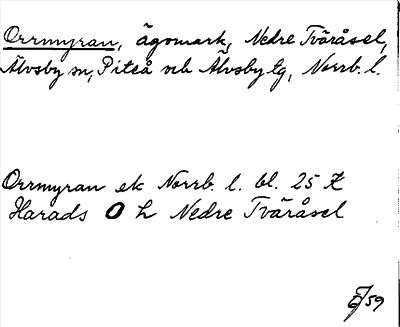 Orrmyran, ägomark, Nedre Tväråsel,
Älvsby sn, Piteå och Älvsby tg, Norrb. l.
Orrmyran ek Norrb. l. bl. 25
Harads O h Nedre Tväråsel
59